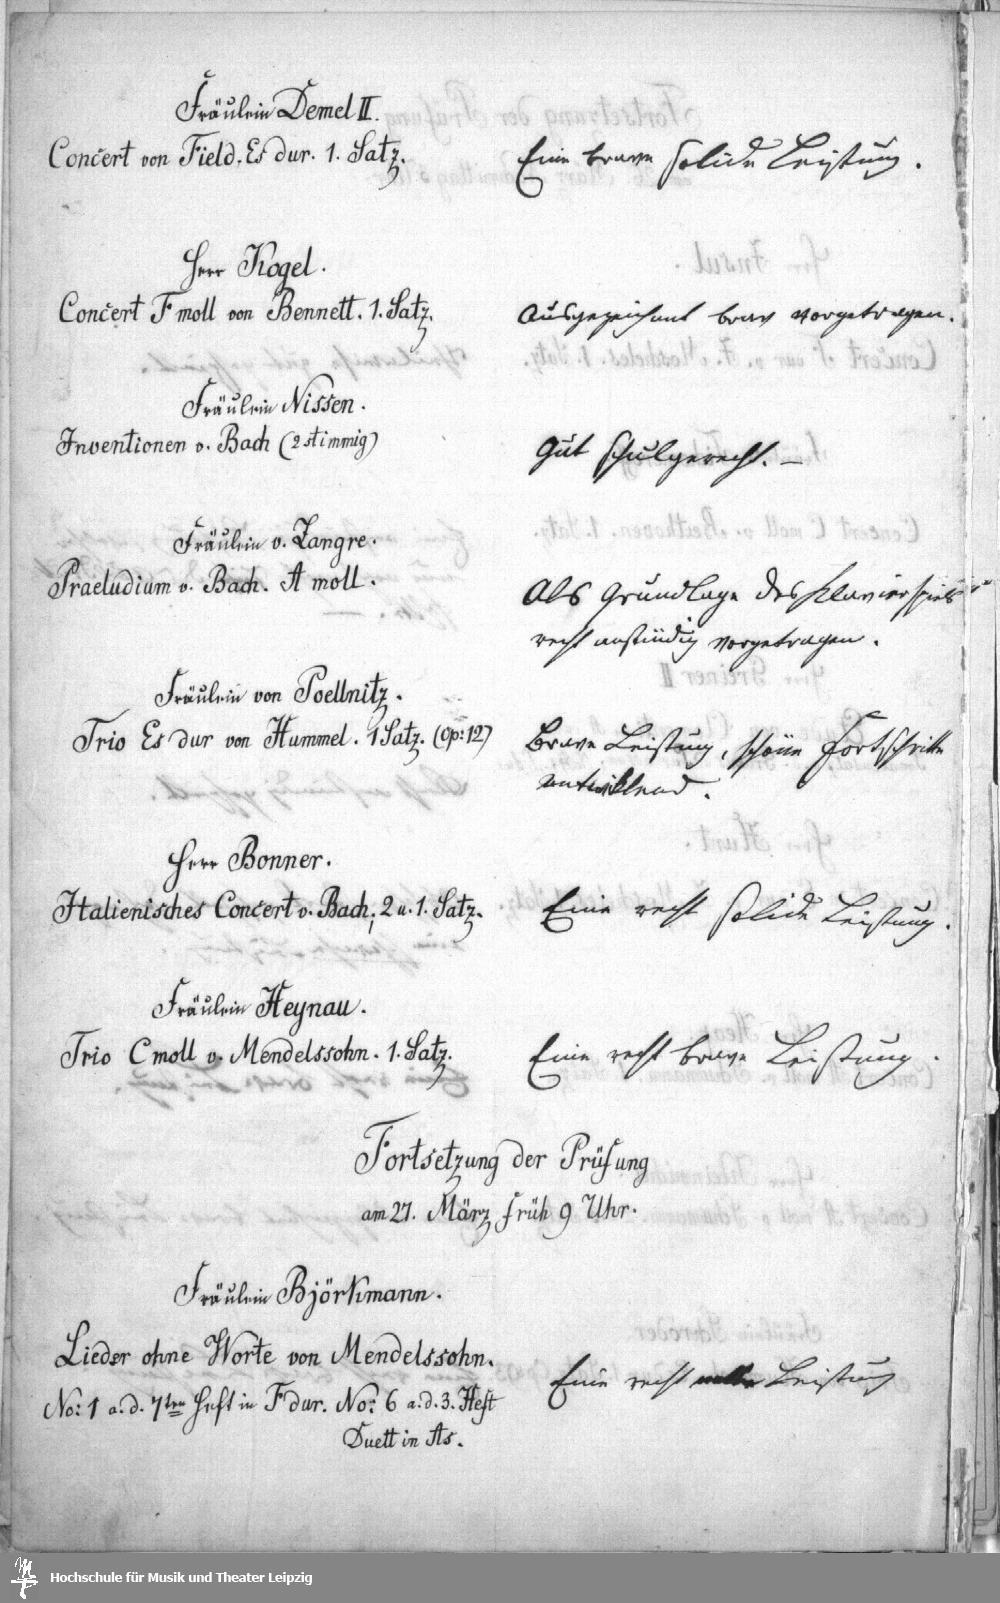 Fräulein Demel II.
Concert von Field. Es dur. 1. Satz.
Eine brave solide Leistung.
Herr Kogel.
Concert F moll von Bennett. 1. Satz.
Ausgezeichnet brav vorgetragen.
Fräulein Nissen.
Inventionen v. Bach (2 stimmig)
Gut schulgerecht. —
Fräulein v. Zangre.
Praeludium v. Bach. A moll.
Als Grundlage des Klavierspiels
recht anständig vorgetragen.
Fräulein von Poellnitz.
Trio Es dur von Hummel. 1 Satz. (Op: 12)
Brave Leistung, schöne Fortschritte
entwiklend.
Herr Bonner.
Italienisches Concert v. Bach; 2 u. 1. Satz.
Eine recht solide Leistung.
Fräulein Heynau.
Trio C moll v. Mendelssohn. 1. Satz.
Eine recht brave Leistung.
Fortsetzung der Prüfung
am 27. März früh 9 Uhr.
Fräulein Björkmann.
Lieder ohne Worte von Mendelssohn.
No: 1 a. d. 7ten Heft in F dur. No: 6 a. d. 3. Heft
Duett in As.
Eine recht Leistung
Hochschule für Musik und Theater Leipzig